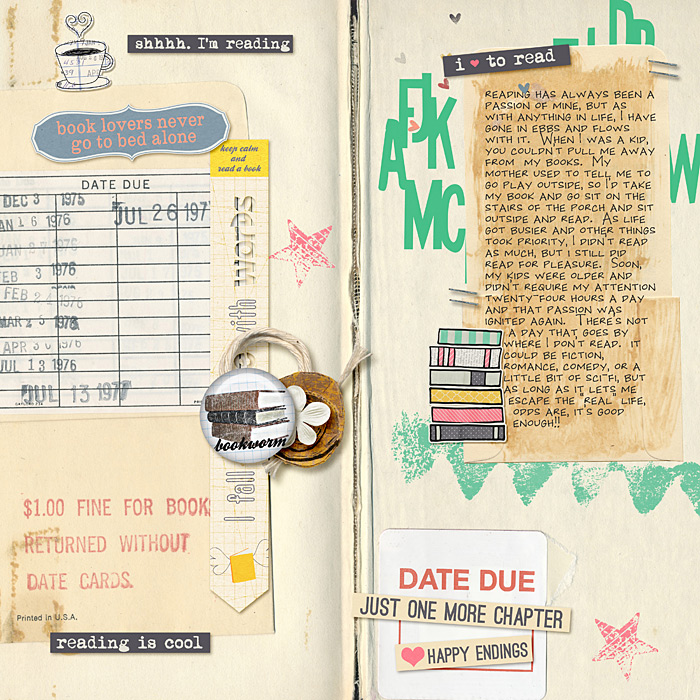 shhhh. I'm reading
book lovers never
go to bed alone
keep calm
and
read a book
DATE DUE
DEC 3 1975
JAN 16 1976
JUL 26 197
JAN 1976
FEB 3 1976
FEB 24 1976
MAR 23 1976
APR 30 1976
JUL 13 1976
JUL 13 1977
I fall
with words
bookworm
$1.00 FINE FOR BOOK
RETURNED WITHOUT
DATE CARDS.
Printed in U.S.A.
reading is cool
i ♥ to read
A F J K
M C
W
READING HAS ALWAYS BEEN A
PASSION OF MINE, BUT AS
WITH ANYTHING IN LIFE, I HAVE
GONE IN EBBS AND FLOWS
WITH IT. WHEN I WAS A KID,
YOU COULDN'T PULL ME AWAY
FROM MY BOOKS. MY
MOTHER USED TO TELL ME TO
GO PLAY OUTSIDE, SO I'D TAKE
MY BOOK AND GO SIT ON THE
STAIRS OF THE PORCH AND SIT
OUTSIDE AND READ. AS LIFE
GOT BUSIER AND OTHER THINGS
TOOK PRIORITY, I DIDN'T READ
AS MUCH, BUT I STILL DID
READ FOR PLEASURE. SOON,
MY KIDS WERE OLDER AND
DIDN'T REQUIRE MY ATTENTION
TWENTY-FOUR HOURS A DAY
AND THAT PASSION WAS
IGNITED AGAIN. THERE'S NOT
A DAY THAT GOES BY
WHERE I DON'T READ. IT
COULD BE FICTION,
ROMANCE, COMEDY, OR A
LITTLE BIT OF SCI FI, BUT
AS LONG AS IT LETS ME
ESCAPE THE "REAL" LIFE,
ODDS ARE, IT'S GOOD
ENOUGH!!
DATE DUE
JUST ONE MORE CHAPTER
HAPPY ENDINGS